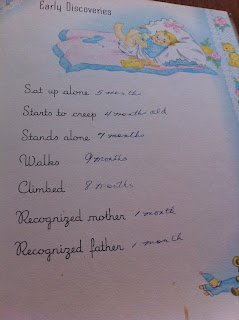 Early Discoveries
Sat up alone 5 month
Starts to creep 4 month old
Stands alone 7 months
Walks 9 months
Climbed 8 months
Recognized mother 1 month
Recognized father 1 month